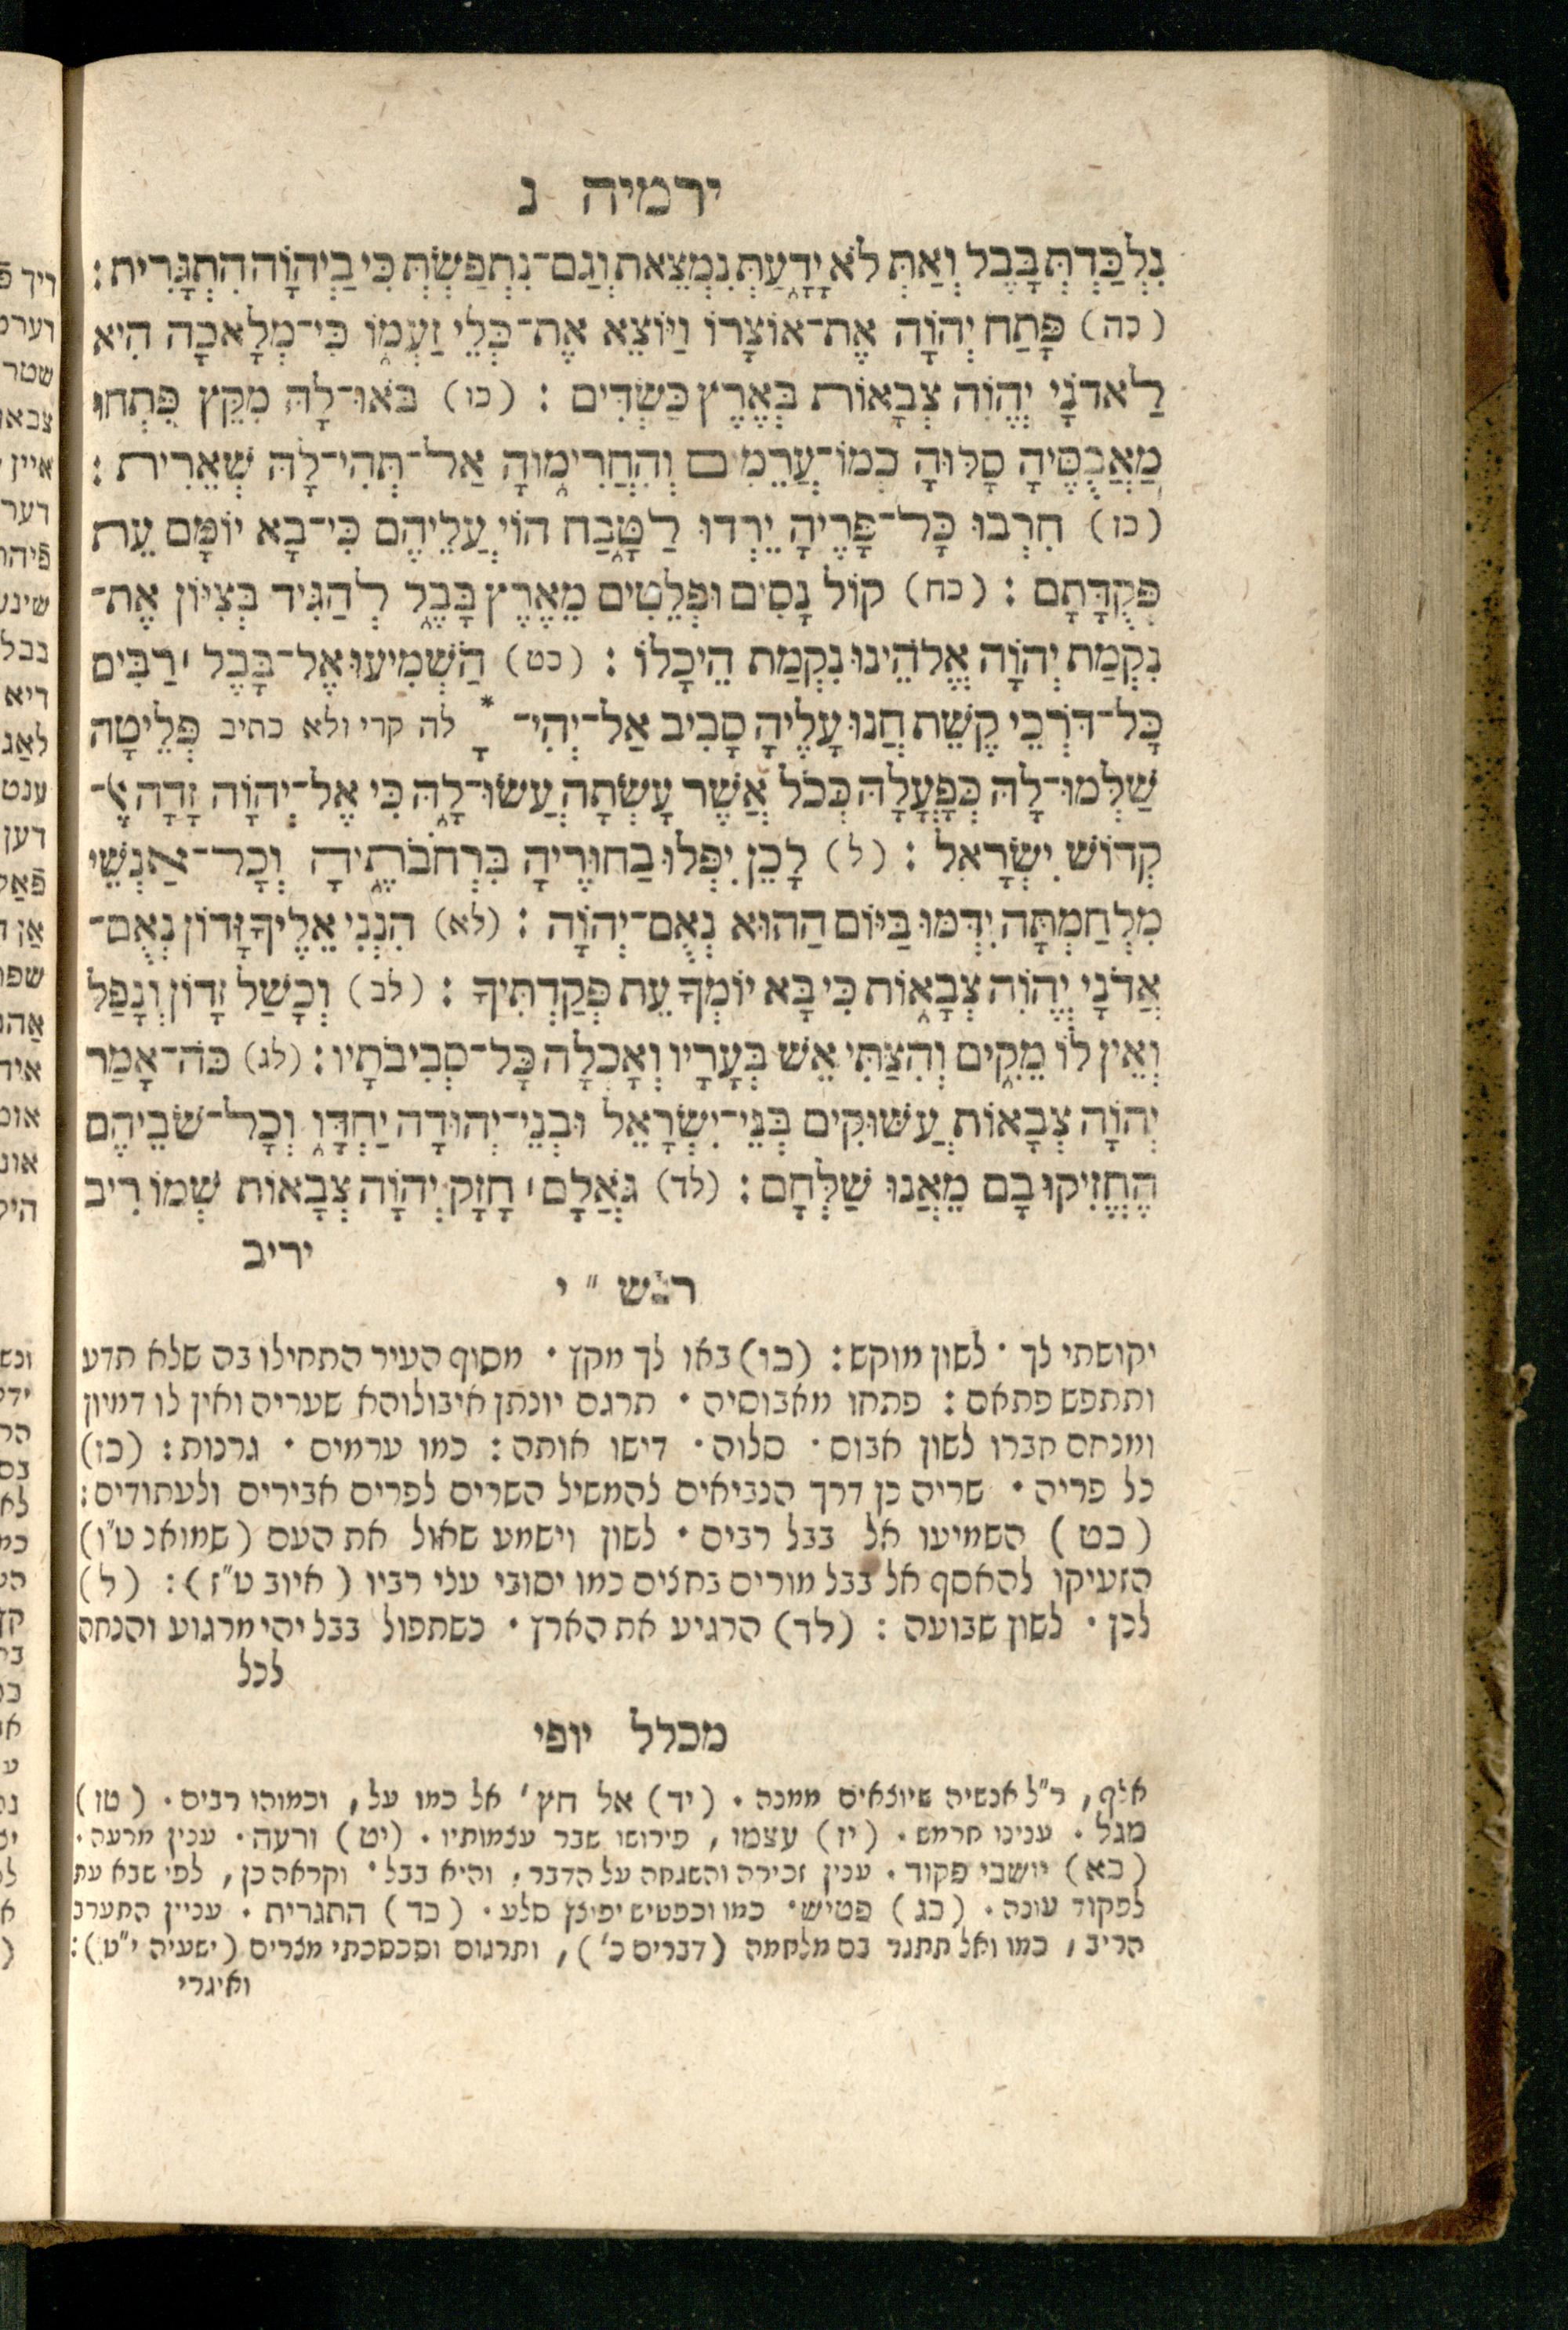 ירמיה נ
נִלְכַּדְתְּ בָּבֶל וְאַתְּ לֹא יָדָעַתְּ נִמְצֵאת וְגַם־נִתְפַּשְׂתְּ כִּי בַיהוָֹה הִתְגָּרִית :
(כה) פָּתַח יְהוָֹה אֶת־אוֹצָרוֹ וַיּוֹצֵא אֶת־כְּלֵי זַעְמוֹ כִּי־מְלָאכָה הִיא
לַאדֹנָי יֱהֹוִה צְבָאוֹת בְּאֶרֶץ כַּשְׂדִּים : (כו) בֹּאוּ־לָהּ מִקֵּץ פִּתְחוּ
מַאֲבֻסֶיהָ סָלּוּהָ כְמוֹ־עֲרֵמִים וְהַחֲרִימוּהָ אַל־תְּהִי־לָהּ שְׁאֵרִית :
(כז) חִרְבוּ כָּל־פָּרֶיהָ יֵרְדוּ לַטָּבַח הוֹי עֲלֵיהֶם כִּי־בָא יוֹמָם עֵת
פְּקֻדָּתָם : (כח) קוֹל נָסִים וּפְלֵטִים מֵאֶרֶץ בָּבֶל לְהַגִּיד בְּצִיּוֹן אֶת־
נִקְמַת יְהוָֹה אֱלֹהֵינוּ נִקְמַת הֵיכָלוֹ : (כט) הַשְׁמִיעוּ אֶל־בָּבֶל ׀ רַבִּים
כָּל־דֹּרְכֵי קֶשֶׁת חֲנוּ עָלֶיהָ סָבִיב אַל־יְהִי־ * ָ לה קרי ולא כתיב פְּלֵיטָה
שַׁלְּמוּ־לָהּ כְּפָעֳלָהּ כְּכֹל אֲשֶׁר עָשְׂתָה עֲשׂוּ־לָהּ כִּי אֶל־יְהוָֹה זָדָה אֶל־
קְדוֹשׁ יִשְׂרָאֵל : (ל) לָכֵן יִפְּלוּ בַחוּרֶיהָ בִּרְחֹבֹתֶיהָ וְכָל־אַנְשֵׁי
מִלְחַמְתָּהּ יִדַּמּוּ בַּיּוֹם הַהוּא נְאֻם־יְהוָֹה : (לא) הִנְנִי אֵלֶיךָ זָדוֹן נְאֻם־
אֲדֹנָי יֱהֹוִה צְבָאוֹת כִּי בָּא יוֹמְךָ עֵת פְּקַדְתִּיךָ : (לב) וְכָשַׁל זָדוֹן וְנָפַל
וְאֵין לוֹ מֵקִים וְהִצַּתִּי אֵשׁ בְּעָרָיו וְאָכְלָה כָּל־סְבִיבֹתָיו : (לג) כֹּה־אָמַר
יְהוָֹה צְבָאוֹת עֲשׁוּקִים בְּנֵי־יִשְׂרָאֵל וּבְנֵי־יְהוּדָה יַחְדָּו וְכָל־שֹׁבֵיהֶם
הֶחֱזִיקוּ בָם מֵאֲנוּ שַׁלְּחָם : (לד) גֹּאֲלָם ׀ חָזָק יְהוָֹה צְבָאוֹת שְׁמוֹ רִיב
יריב
רש"י
יקושתי לך · לשון מוקש : (כו) באו לך מקץ · מסוף העיר התחילו בה שלא תדע
ותתפש פתאם : פתחו מאבוסיה · תרגם יונתן איבולוהא שעריה ואין לו דמיון
ומנחם חברו לשון אבוס · סלוה · דישו אותה : כמו ערמים · גרנות : (כז)
כל פריה · שריה כן דרך הנביאים להמשיל השרים לפרים אבירים ולעתודים :
(כט) השמיעו אל בבל רבים · לשון וישמע שאול את העם (שמואל ט"ו)
הזעיקו להאסף אל בבל מורים בחצים כמו יסובי עלי רביו (איוב ט"ז) : (ל)
לכן · לשון שבועה : (לד) הרגיע את הארץ · כשתפול בבל יהי מרגוע והנחה
לכל
מכלל יופי
אלף, ר"ל אנשיה שיוצאים ממנה · (יד) אל חץ ' אל כמו על, וכמוהו רבים · (טז)
מגל · ענינו חרמש · (יז) עצמו, פירושו שבר עצמותיו · (יט) ורעה · ענין מרעה ·
(כא) יושבי פקוד · ענין זכירה והשגחה על הדבר, והיא בבל · וקראה כן, לפי שבא עת
לפקוד עונה · (כג) פטיש · כמו וכפטיש יפוצץ סלע · (כד) התגרית · עניין התערב
הריב, כמו ואל תתגר בם מלחמה (דברים כ'), ותרגום וסכסכתי מצרים (ישעיה י"ט) :
ואיגרי